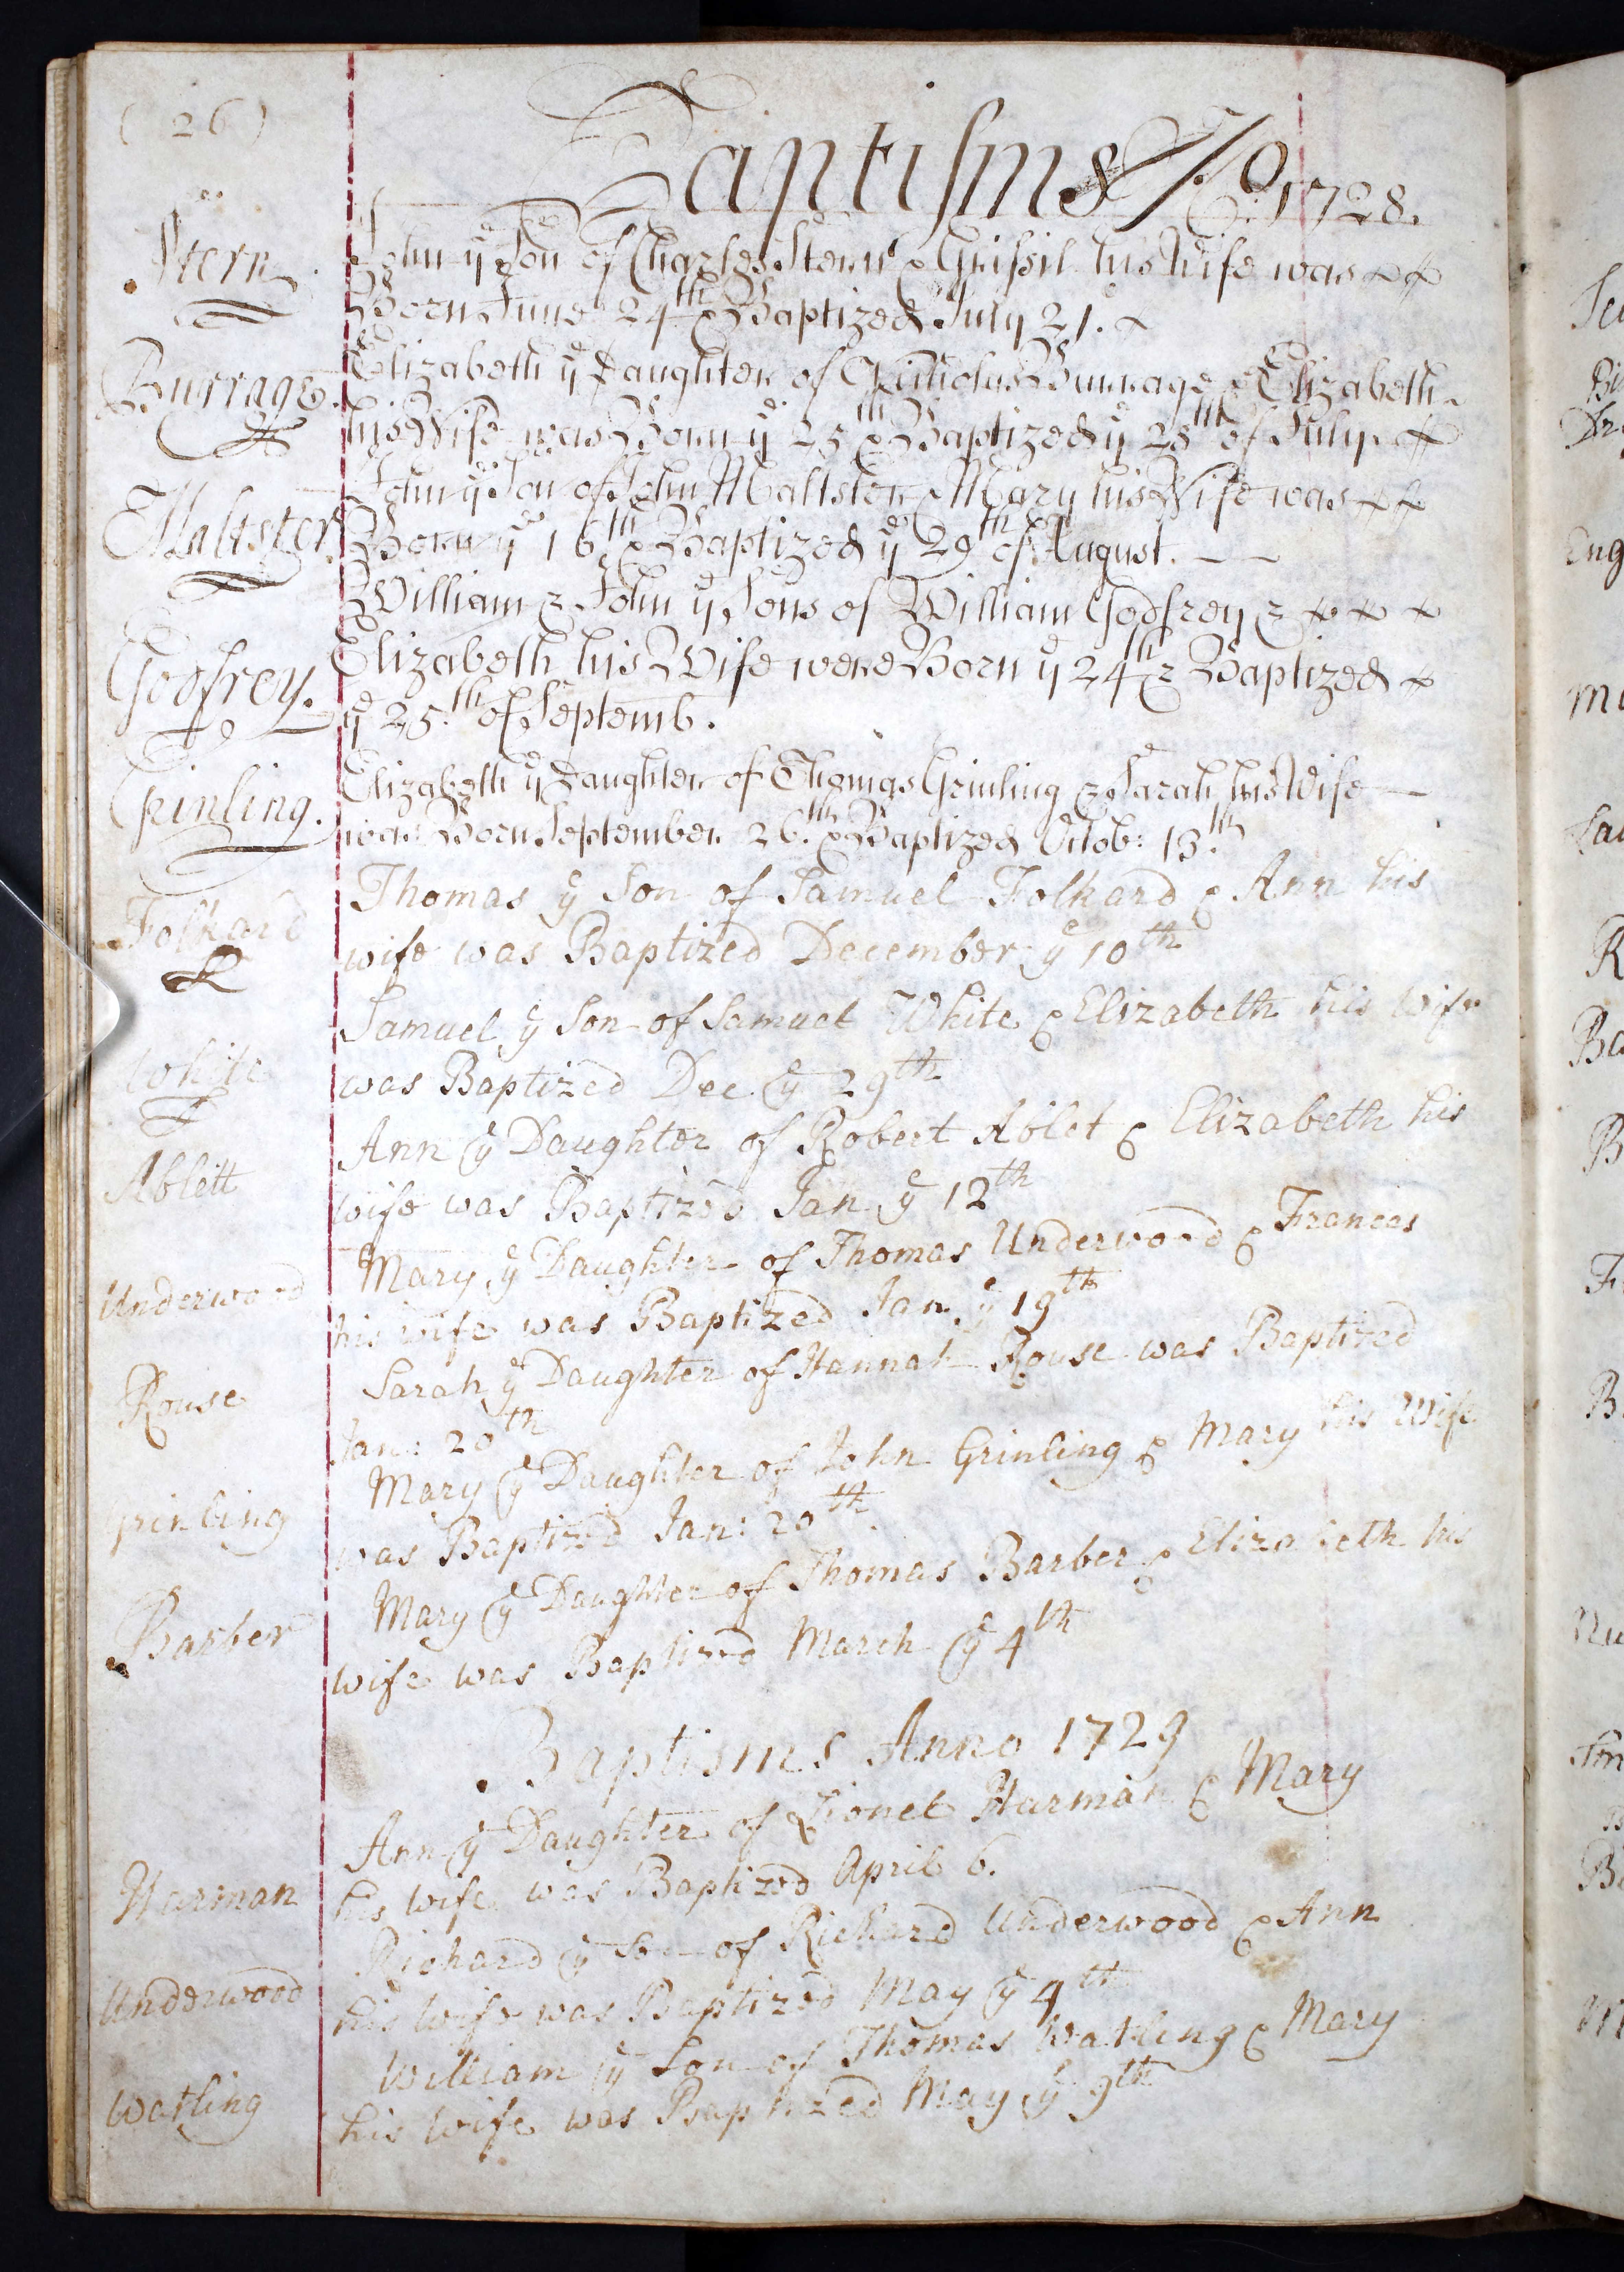 (26)
Baptisms Ao. 1728.
Stern.
John ye Son of Charles Stern & Grissil his Wife was
Born June 24th & Baptized July 21.
Burrage.
Elizabeth ye Daughter of Burrage & Elizabeth
his Wife was Born ye 25th & Baptized ye 28th of July.
Maltster
John ye Son of John Maltster & Mary his Wife was
Born ye 16th & Baptized ye 29th of August.
William & John ye Sons of William Godfrey &
Godfrey.
Elizabeth his Wife were Born ye 24th & Baptized
ye 25.th of Septemb.
Grinling.
Elizabeth ye Daughter of Thomas Grinling & Sarah his Wife
was Born September 26.th & Baptized Octob: 13.th
Folkard
Thomas ye Son of Samuel Folkard & Ann his
wife was Baptized December ye 10th
White
Samuel ye Son of Samuel White & Elizabeth his wife
was Baptized Dec ye 29th
Ablett
Ann ye Daughter of Robert Ablet & Elizabeth his
wife was Baptized Jan ye 12th
Underwood
Mary ye Daughter of Thomas Underwood & Frances
his wife was Baptized Jan ye 19th
Rouse
Sarah ye Daughter of Hannah Rouse was Baptized
Jan: 20th
Grinling
Mary ye Daughter of John Grinling & Mary his Wife
was Baptized Jan: 20th
Barber
Mary ye Daughter of Thomas Barber & Elizabeth his
wife was Baptized March ye 4th
Baptisms Anno 1729
Ann ye Daughter of Lionel Harman & Mary
Harman
his wife was Baptized April 6.
Richard ye Son of Richard Underwood & Ann
Underwood
his wife was Baptized May ye 4th
William ye Son of Thomas Watling & Mary
Watling
his wife was Baptized May ye 9th